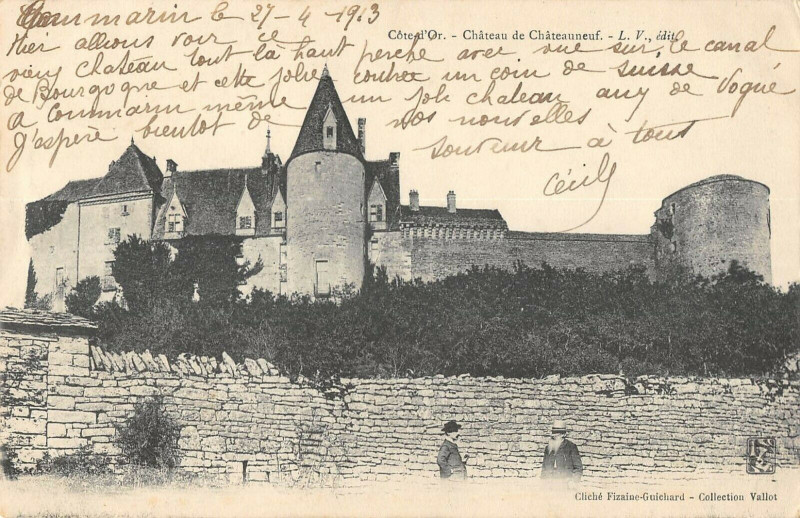 Commarin le 27-4 1913
Côte-d'Or. - Château de Châteauneuf. - L. V., édit.
Hier allions voir ce
vieux chateau tout là haut perché avec vue sur le canal
de Bourgogne et cette jolie contrée un coin de Suisse
A Commarin même un joli chateau a de Vogué
J'espère bientôt de vos nouvelles
Souvenir à tous
Cécile
Cliché Fizaine-Guichard - Collection Vallot